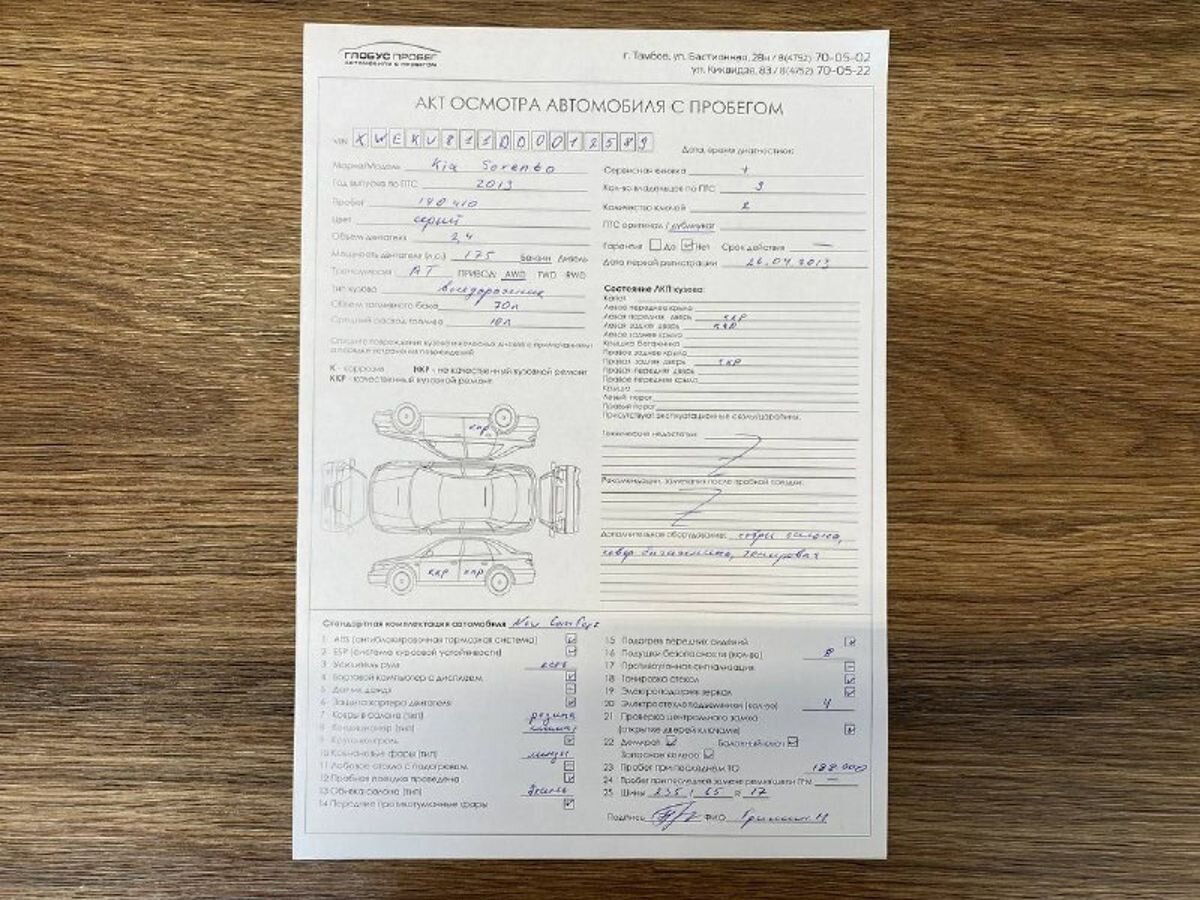 ГЛОБУС ПРОБЕГ
АВТОМОБИЛИ С ПРОБЕГОМ
г. Тамбов, ул. Бастионная, 28н / 8(4752) 70-05-02
ул. Киквидзе, 83 / 8(4752) 70-05-22
АКТ ОСМОТРА АВТОМОБИЛЯ С ПРОБЕГОМ
VIN XWEKU811DD0012589
Дата, время диагностики:
Марка/Модель Kia Sorento
Год выпуска по ПТС 2013
Пробег 190 410
Цвет серый
Объем двигателя 2,4
Мощность двигателя (л.с.) 175 Бензин Дизель
Трансмиссия АТ ПРИВОД: AWD FWD RWD
Тип кузова внедорожник
Объем топливного бака 70л
Средний расход топлива 10л
Опишите повреждения кузова и колесных дисков с примечанием
и порядке устранения повреждений
К - коррозия НКР - не качественный кузовной ремонт
ККР - качественный кузовной ремонт
ккр
ккр ккр
Сервисная книжка +
Кол-во владельцев по ПТС 3
Количество ключей 2
ПТС оригинал / дубликат
Гарантия Да Нет Срок действия —
Дата первой регистрации 26.04.2013
Состояние ЛКП кузова:
Капот
Левое переднее крыло
Левая передняя дверь ККР
Левая задняя дверь ККР
Левое заднее крыло
Крышка багажника
Правое заднее крыло
Правая задняя дверь ККР
Правая передняя дверь
Правое переднее крыло
Крыша
Левый порог
Правый порог
Присутствуют эксплуатационные сколы/царапины.
Технические недостатки:
Рекомендации, замечания после пробной поездки:
Дополнительное оборудование: ковры салона,
ковер багажника, тонировка
Стандартная комплектация автомобиля New Comfort
1 ABS (антиблокировочная тормозная система)
2 ESP (система курсовой устойчивости)
3 Усилитель руля есть
4 Бортовой компьютер с дисплеем
5 Датчик дождя
6 Защита картера двигателя
7 Ковры в салоне (тип) резина
8 Кондиционер (тип) климат
9 Круиз-контроль
10 Ксеноновые фары (тип) линзы
11 Лобовое стекло с подогревом
12 Пробная поездка проведена
13 Обивка салона (тип) Ткань
14 Передние противотуманные фары
15 Подогрев передних сидений
16 Подушки безопасности (кол-во) 8
17 Противоугонная сигнализация
18 Тонировка стекол
19 Электроподогрев зеркал
20 Электростеклоподъемники (кол-во) 4
21 Проверка центрального замка
(открытие дверей ключами)
22 Домкрат Балонный ключ
Запасное колесо
23 Пробег при последнем ТО 188 000
24 Пробег при последней замене ремня/цепи ГРМ —
25 Шины 235 / 65 R 17
Подпись ФИО